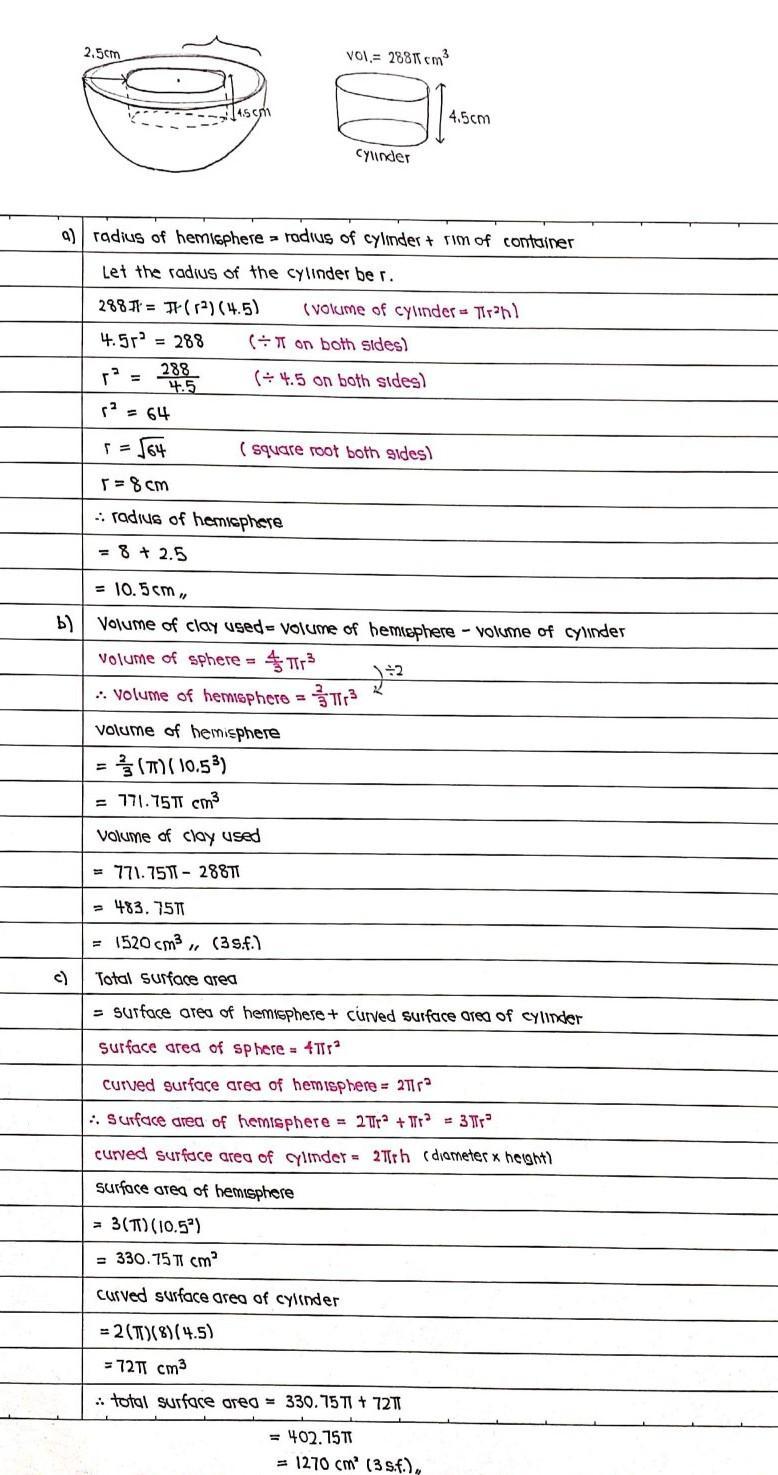 2.5cm
4.5cm
vol.= 288π cm³
4.5cm
cylinder
a) radius of hemisphere = radius of cylinder + rim of container
Let the radius of the cylinder be r.
288π = π(r²)(4.5) (volume of cylinder = πr²h)
4.5r² = 288 (÷π on both sides)
r² = 288/4.5 (÷ 4.5 on both sides)
r² = 64
r = √64 (square root both sides)
r = 8 cm
∴ radius of hemisphere
= 8 + 2.5
= 10.5cm,,
b) Volume of clay used = volume of hemisphere - volume of cylinder
volume of sphere = 4/3 πr³
÷2
∴ volume of hemisphere = 2/3 πr³
volume of hemisphere
= 2/3 (π)(10.5³)
= 771.75π cm³
Volume of clay used
= 771.75π - 288π
= 483.75π
= 1520 cm³ ,, (3 s.f.)
c) Total surface area
= surface area of hemisphere + curved surface area of cylinder
surface area of sphere = 4πr²
curved surface area of hemisphere = 2πr²
∴ surface area of hemisphere = 2πr² + πr² = 3πr²
curved surface area of cylinder = 2πrh (diameter x height)
surface area of hemisphere
= 3(π)(10.5²)
= 330.75π cm²
curved surface area of cylinder
= 2(π)(8)(4.5)
= 72π cm³
∴ total surface area = 330.75π + 72π
= 402.75π
= 1270 cm² (3 s.f.),,